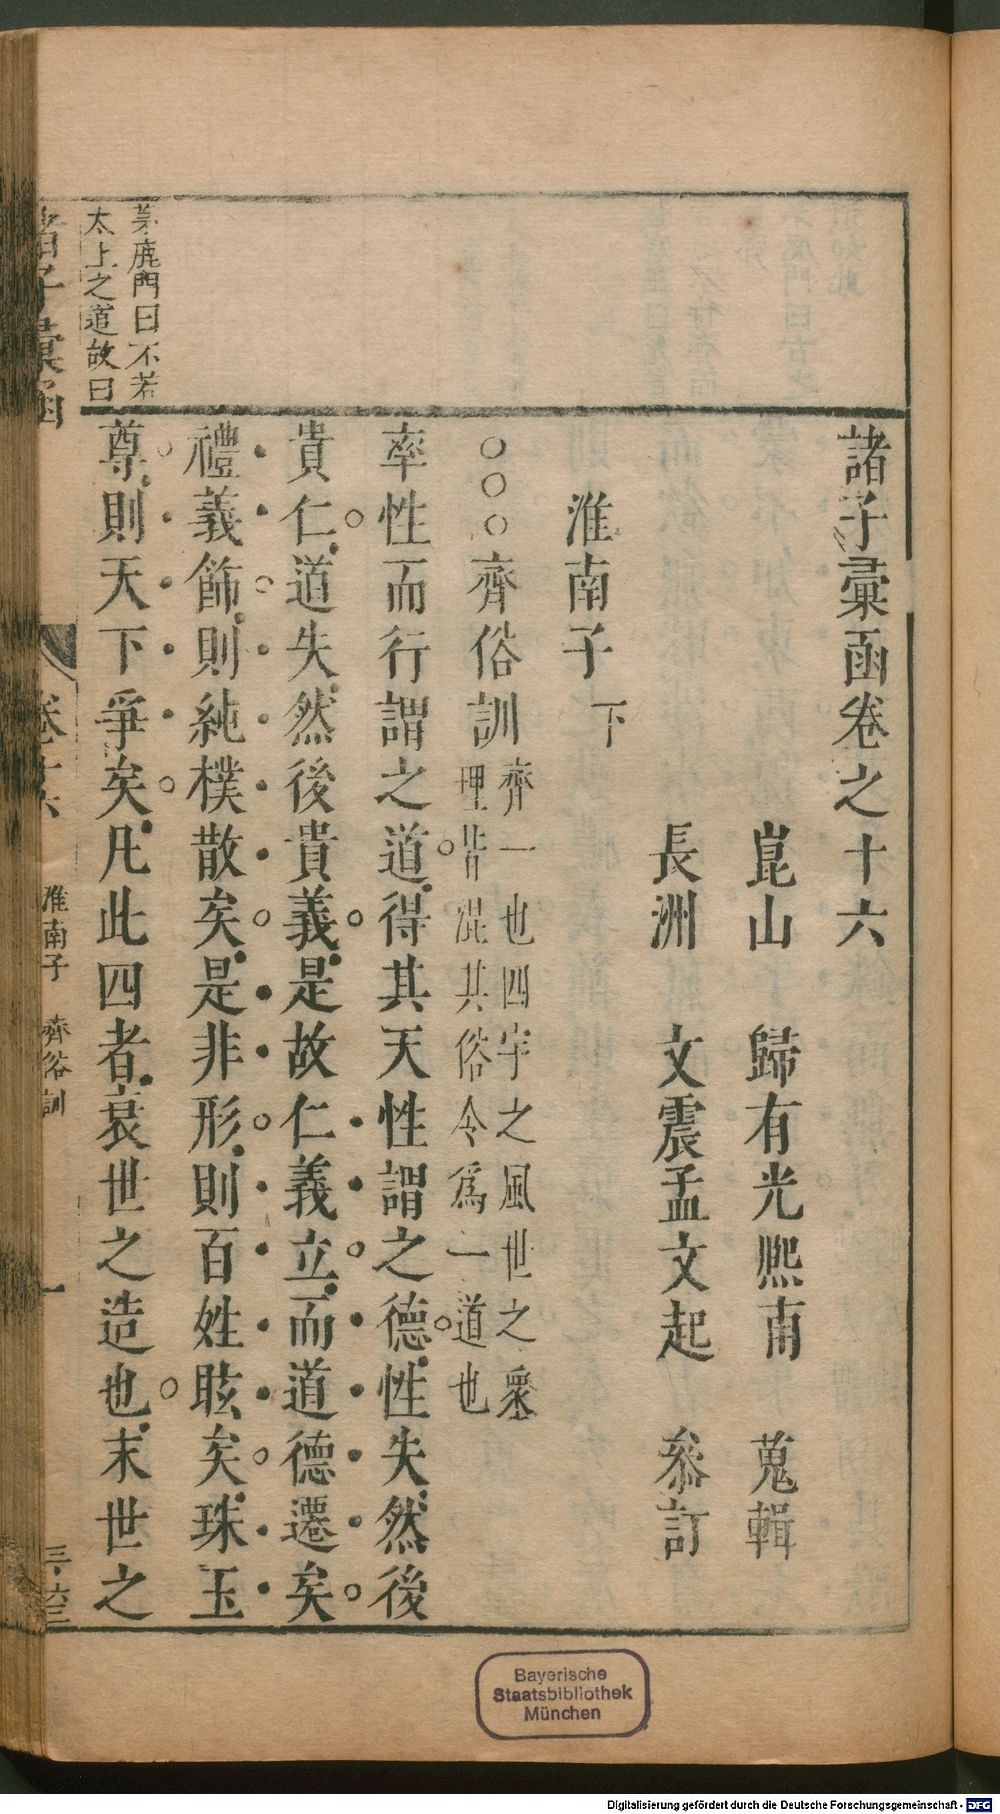 諸子彙函卷之十六
崑山 歸有光熙甫 蒐輯
長洲 文震孟文起 叅訂
淮南子 下
○○○齊俗訓
齊一也四宇之風世之衆
理皆混其俗令爲一道也
率性而行謂之道得其天性謂之德性失然後
貴仁道失然後貴義是故仁義立而道德遷矣
禮義飾則純樸散矣是非形則百姓眩矣珠玉
尊則天下爭矣凡此四者衰世之造也末世之
茅鹿門曰不若
太上之道故曰
諸子彙函
卷十六
淮南子 齊俗訓
一